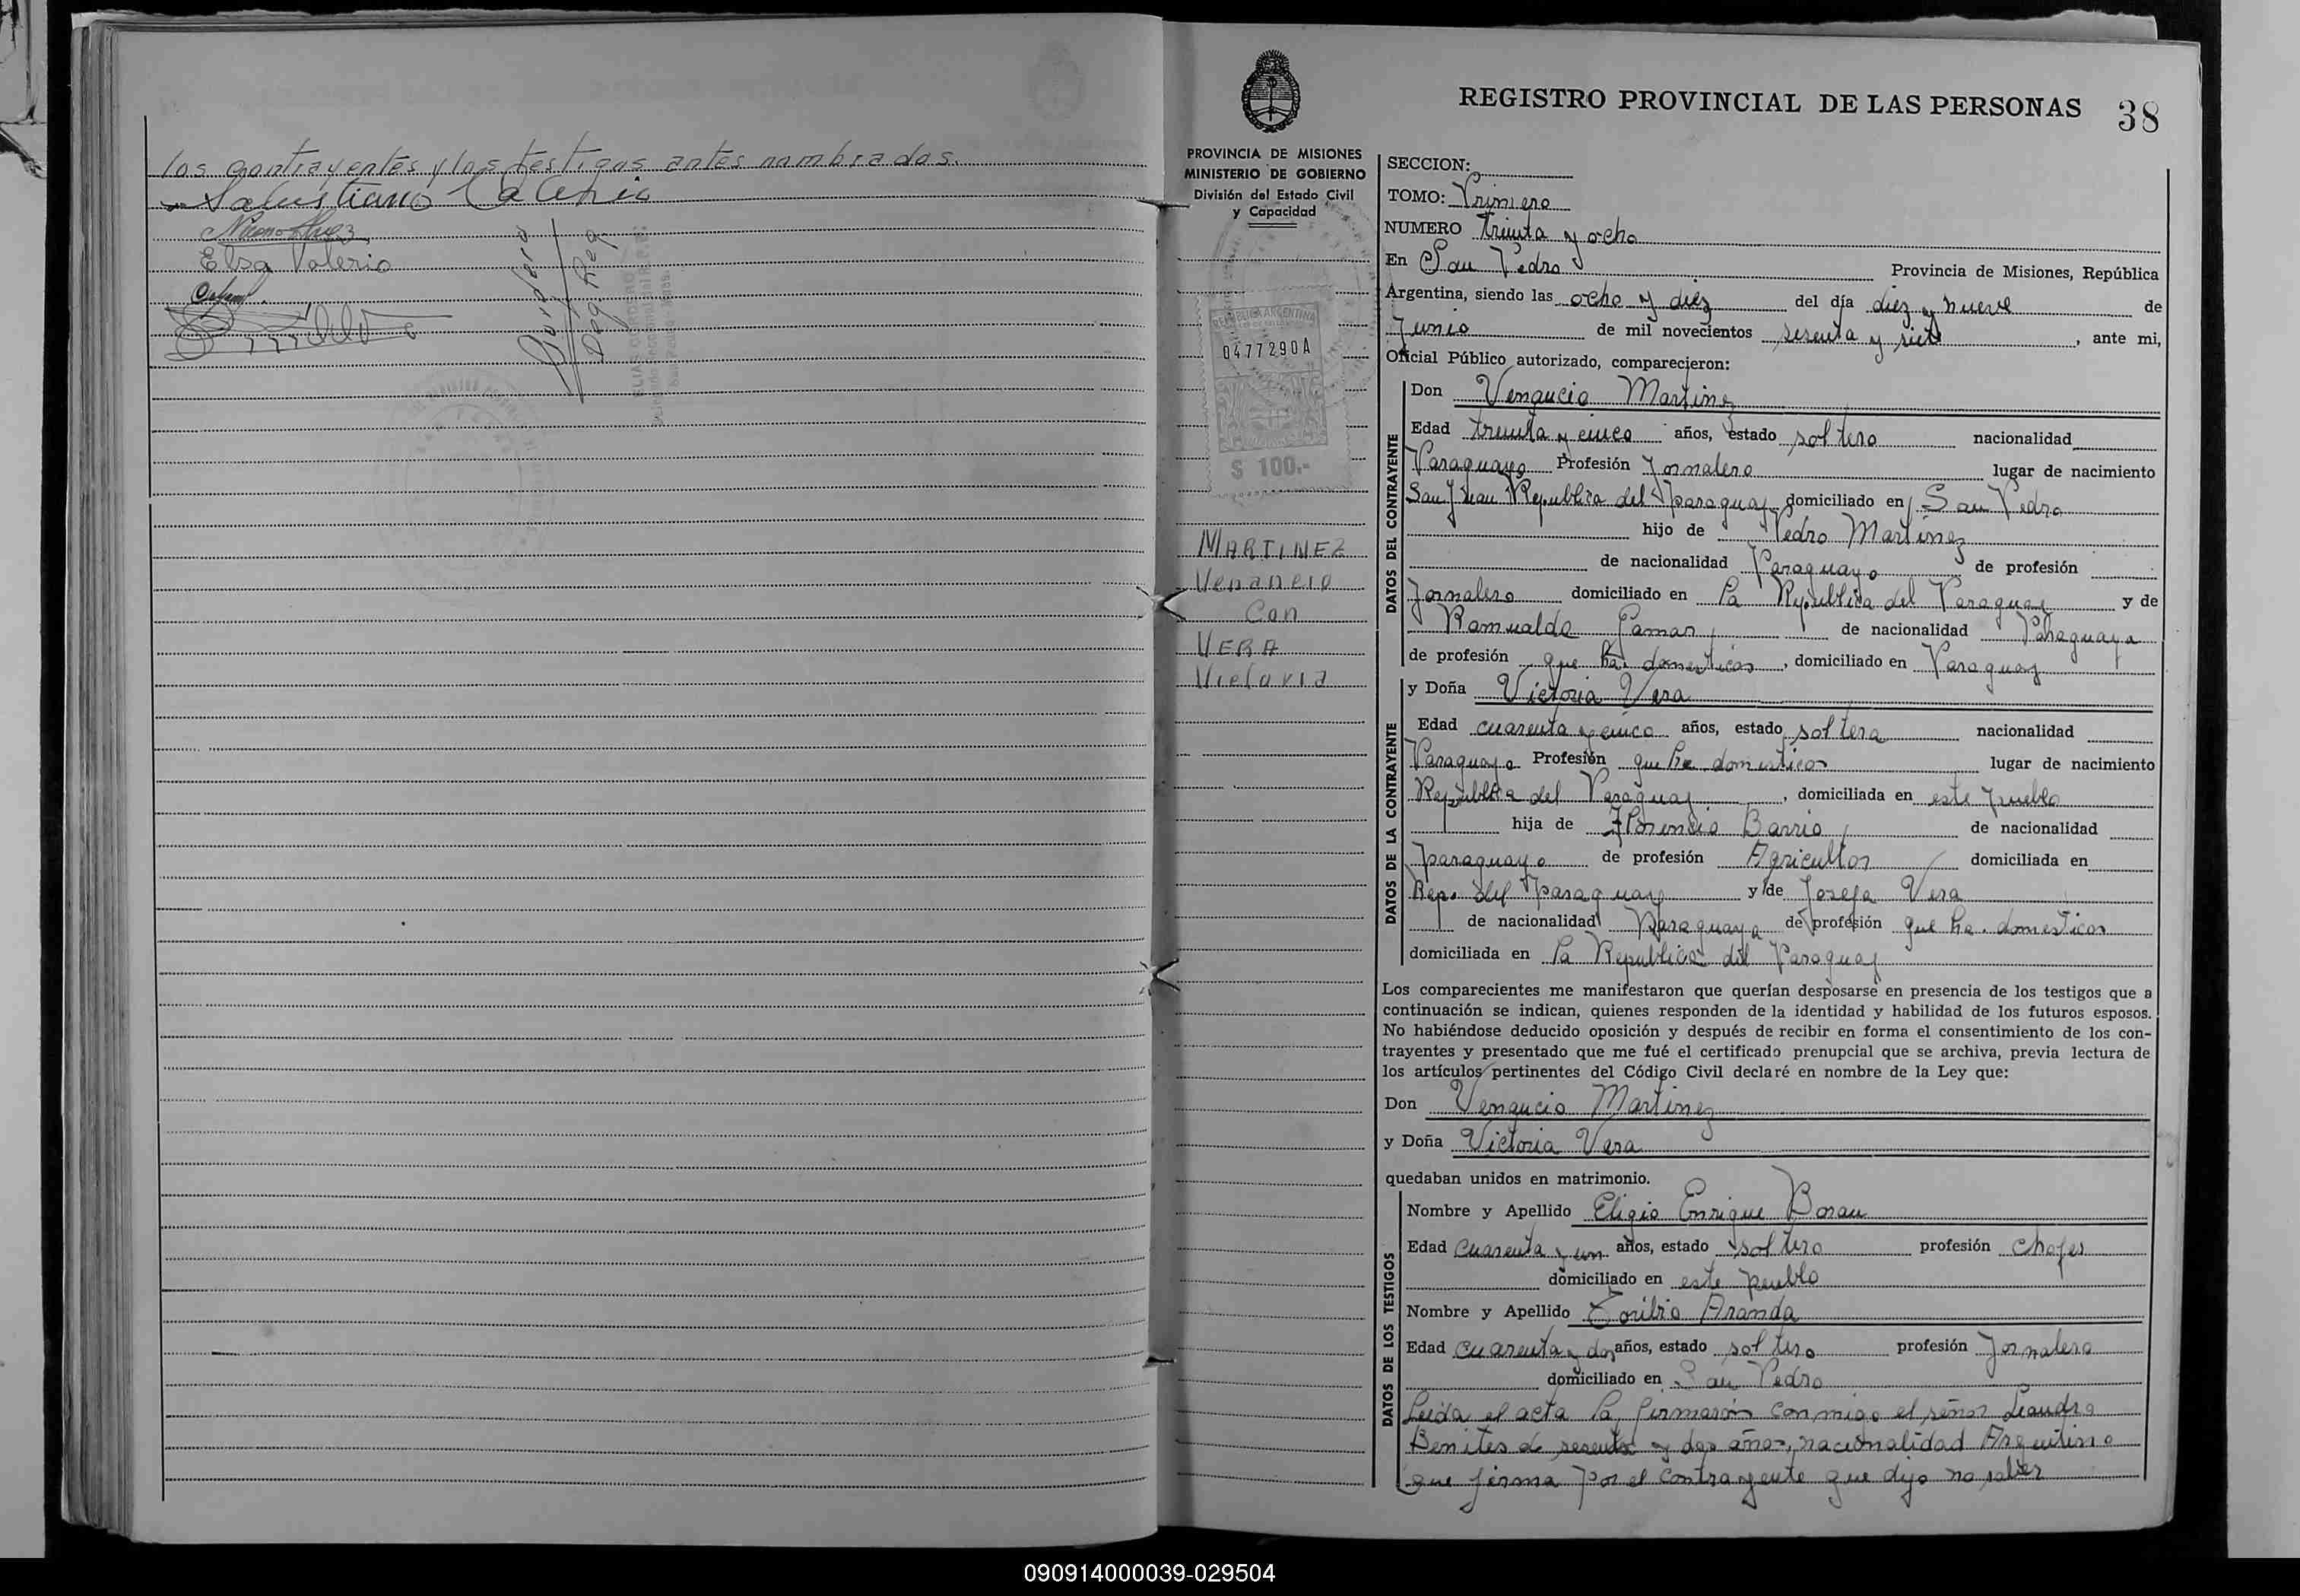 los contrayentes y los testigos antes nombrados.
Salustiano
Elsa Valerio
REGISTRO PROVINCIAL DE LAS PERSONAS 38
PROVINCIA DE MISIONES
MINISTERIO DE GOBIERNO
División del Estado Civil
y Capacidad
REPUBLICA ARGENTINA
0477290A
$ 100.-
MARTINEZ
Venancio
Con
VERA
Victoria
SECCION:
TOMO: Primero
NUMERO treinta y ocho
En San Pedro Provincia de Misiones, República
Argentina, siendo las ocho y diez del día diez y nueve de
Junio de mil novecientos sesenta y siete, ante mi,
Oficial Público autorizado, comparecieron:
DATOS DEL CONTRAYENTE
Don Venancio Martinez
Edad treinta y cinco años, estado soltero nacionalidad
Paraguayo Profesión Jornalero lugar de nacimiento
San Juan Republica del Paraguay domiciliado en San Pedro
hijo de Pedro Martinez
de nacionalidad Paraguayo de profesión
Jornalero domiciliado en la Republica del Paraguay y de
Romualda de nacionalidad Paraguaya
de profesión que ha. domesticos, domiciliado en Paraguay
DATOS DE LA CONTRAYENTE
y Doña Victoria Vera
Edad cuarenta y cinco años, estado soltera nacionalidad
Paraguaya Profesión que ha. domesticos lugar de nacimiento
Republica del Paraguay, domiciliada en este pueblo
hija de Florencio Barrio de nacionalidad
paraguayo de profesión Agricultor domiciliada en
Rep. del Paraguay y de Josefa Vera
de nacionalidad Paraguaya de profesión que ha. domesticos
domiciliada en la Republica del Paraguay
Los comparecientes me manifestaron que querían desposarse en presencia de los testigos que a
continuación se indican, quienes responden de la identidad y habilidad de los futuros esposos.
No habiéndose deducido oposición y después de recibir en forma el consentimiento de los con-
trayentes y presentado que me fué el certificado prenupcial que se archiva, previa lectura de
los artículos pertinentes del Código Civil declaré en nombre de la Ley que:
Don Venancio Martinez
y Doña Victoria Vera
quedaban unidos en matrimonio.
DATOS DE LOS TESTIGOS
Nombre y Apellido Eligio Enrique
Edad cuarenta y un años, estado soltero profesión chofer
domiciliado en este pueblo
Nombre y Apellido Toribio Aranda
Edad cuarenta y dos años, estado soltero profesión Jornalero
domiciliado en San Pedro
Leida el acta la firmaron conmigo el señor Leandro
Benites de sesenta y dos años, nacionalidad Argentino
que firma por el contrayente que dijo no saber
090914000039-029504